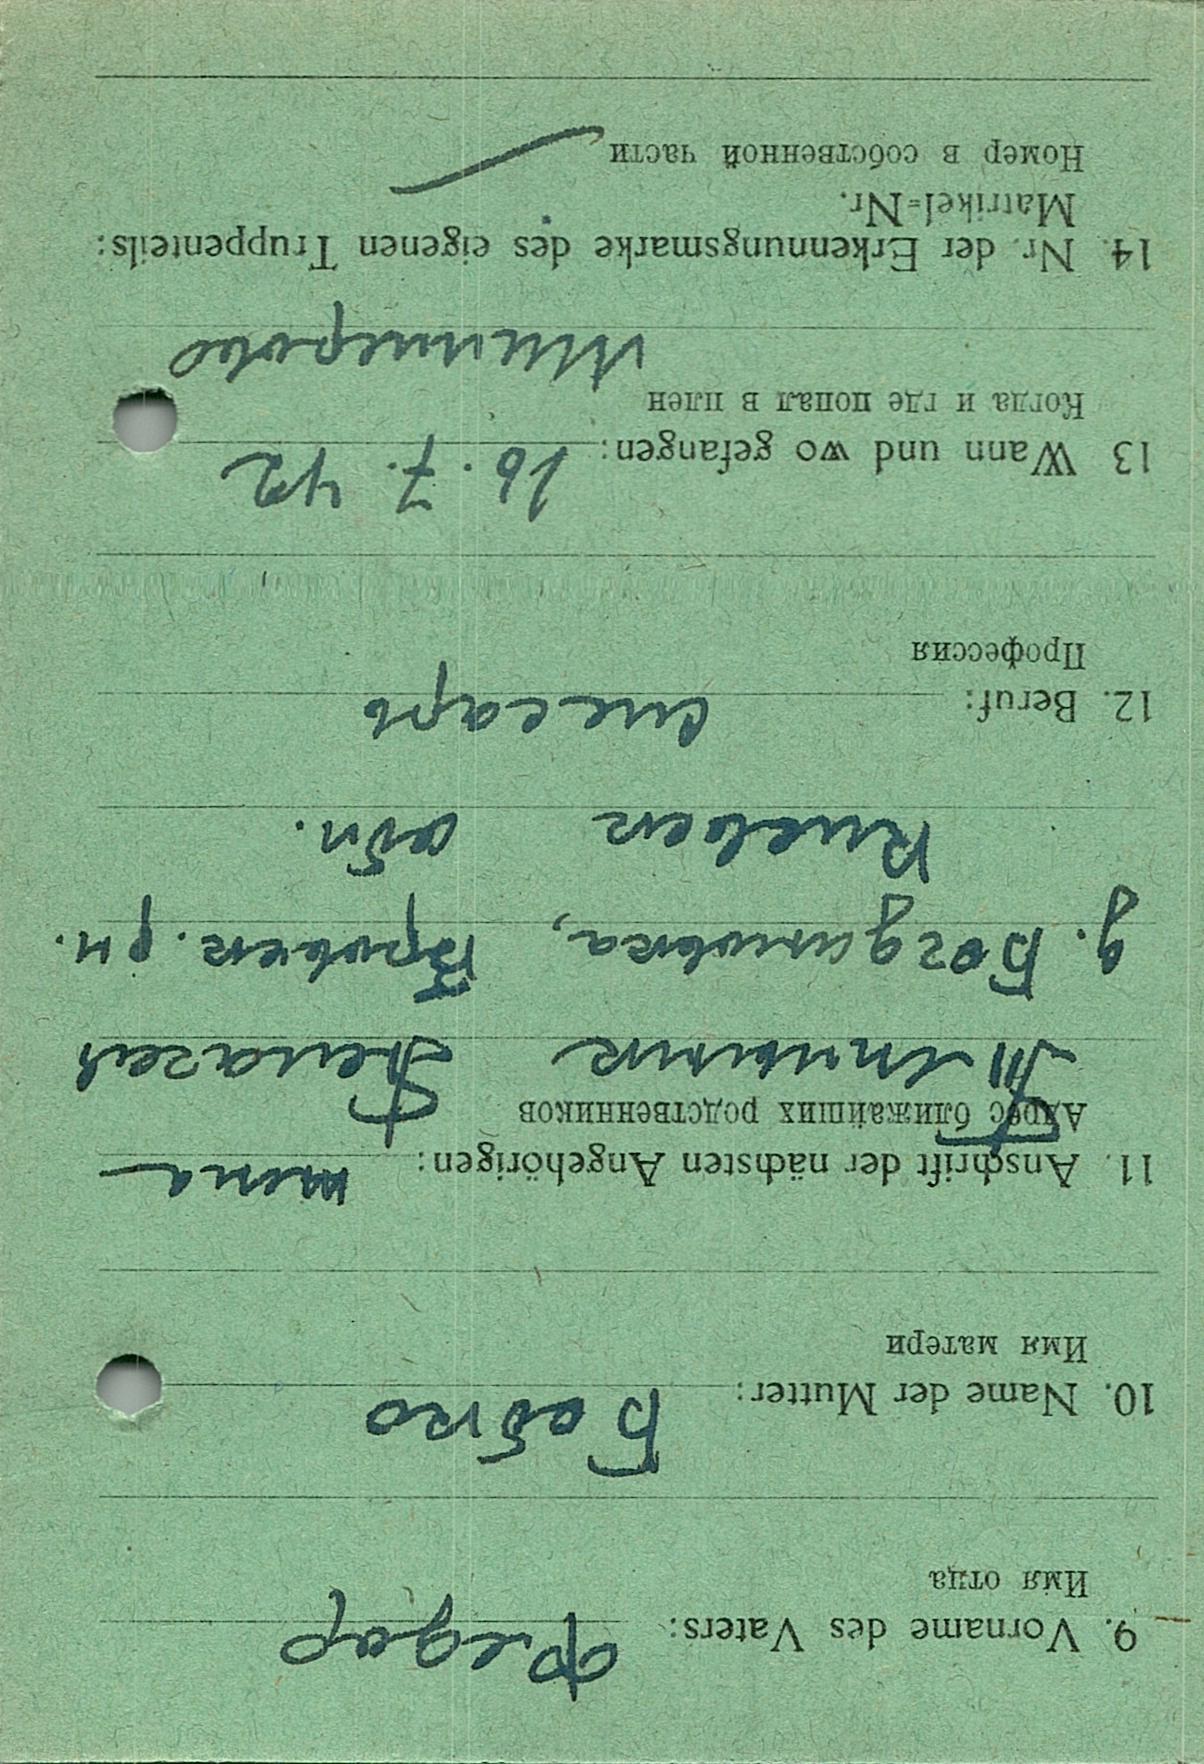 9. Vorname des Vaters: Федор
Имя отца
10. Name der Mutter: Бабко
Имя матери
11. Anschrift der nächsten Angehörigen: жена
Адрес ближайших родственников
Пелагея
д. Богдановка, Бровск. рн.
Киевск обл.
12. Beruf: слесарь
Профессия
13 Wann und wo gefangen: 16. 7. 42
Когда и где попал в плен
Миллерово
14. Nr. der Erkennungsmarke des eigenen Truppenteils:
Matrikel=Nr.
Номер в собственной части